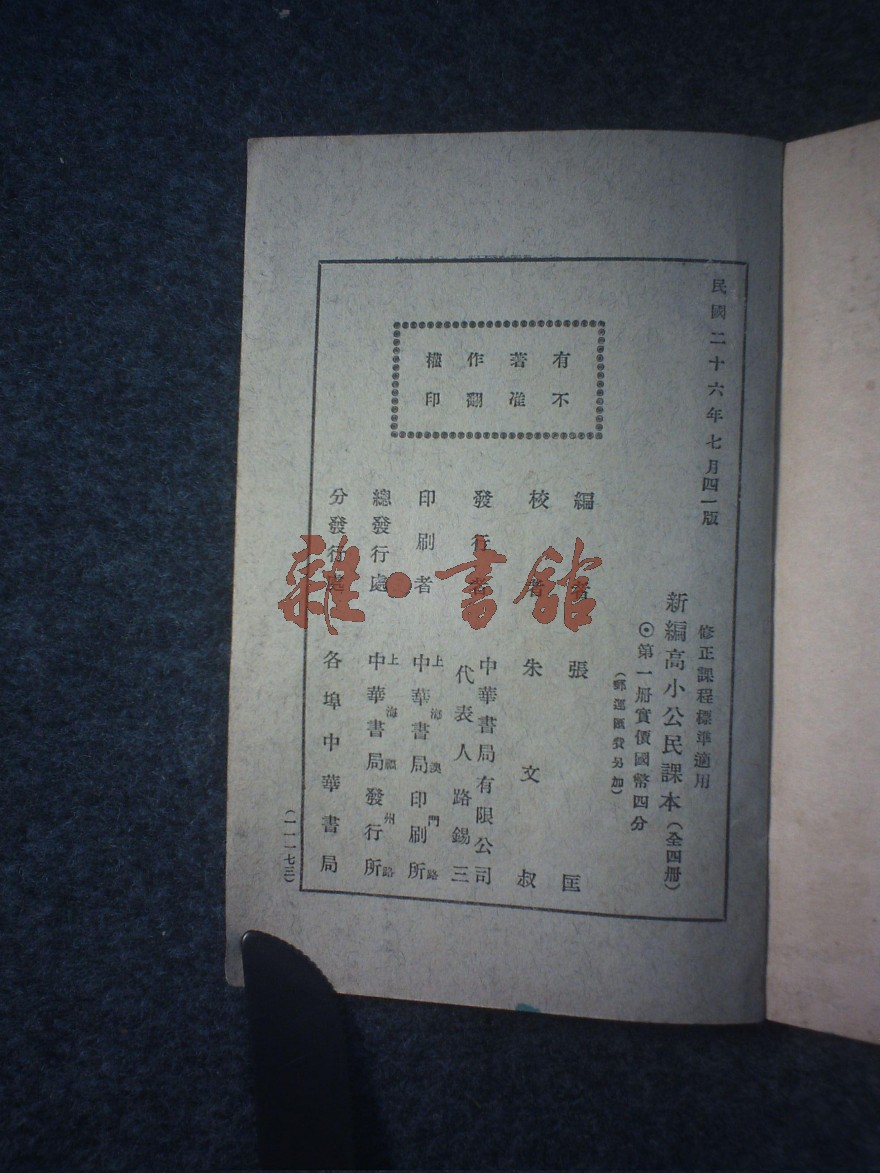 民國二十六年七月四一版
修正課程標準適用
新編高小公民課本（全四冊）
⊙第一册實價國幣四分
（郵運匯費另加）
有著作權
不准翻印
編者　張匡
校者　朱文叔
發行者　中華書局有限公司
代表人路錫三
印刷者　上海澳門路
中華書局印刷所
總發行處　上海福州路
中華書局發行所
分發行處　各埠中華書局
（一一一七三）
雜·書館